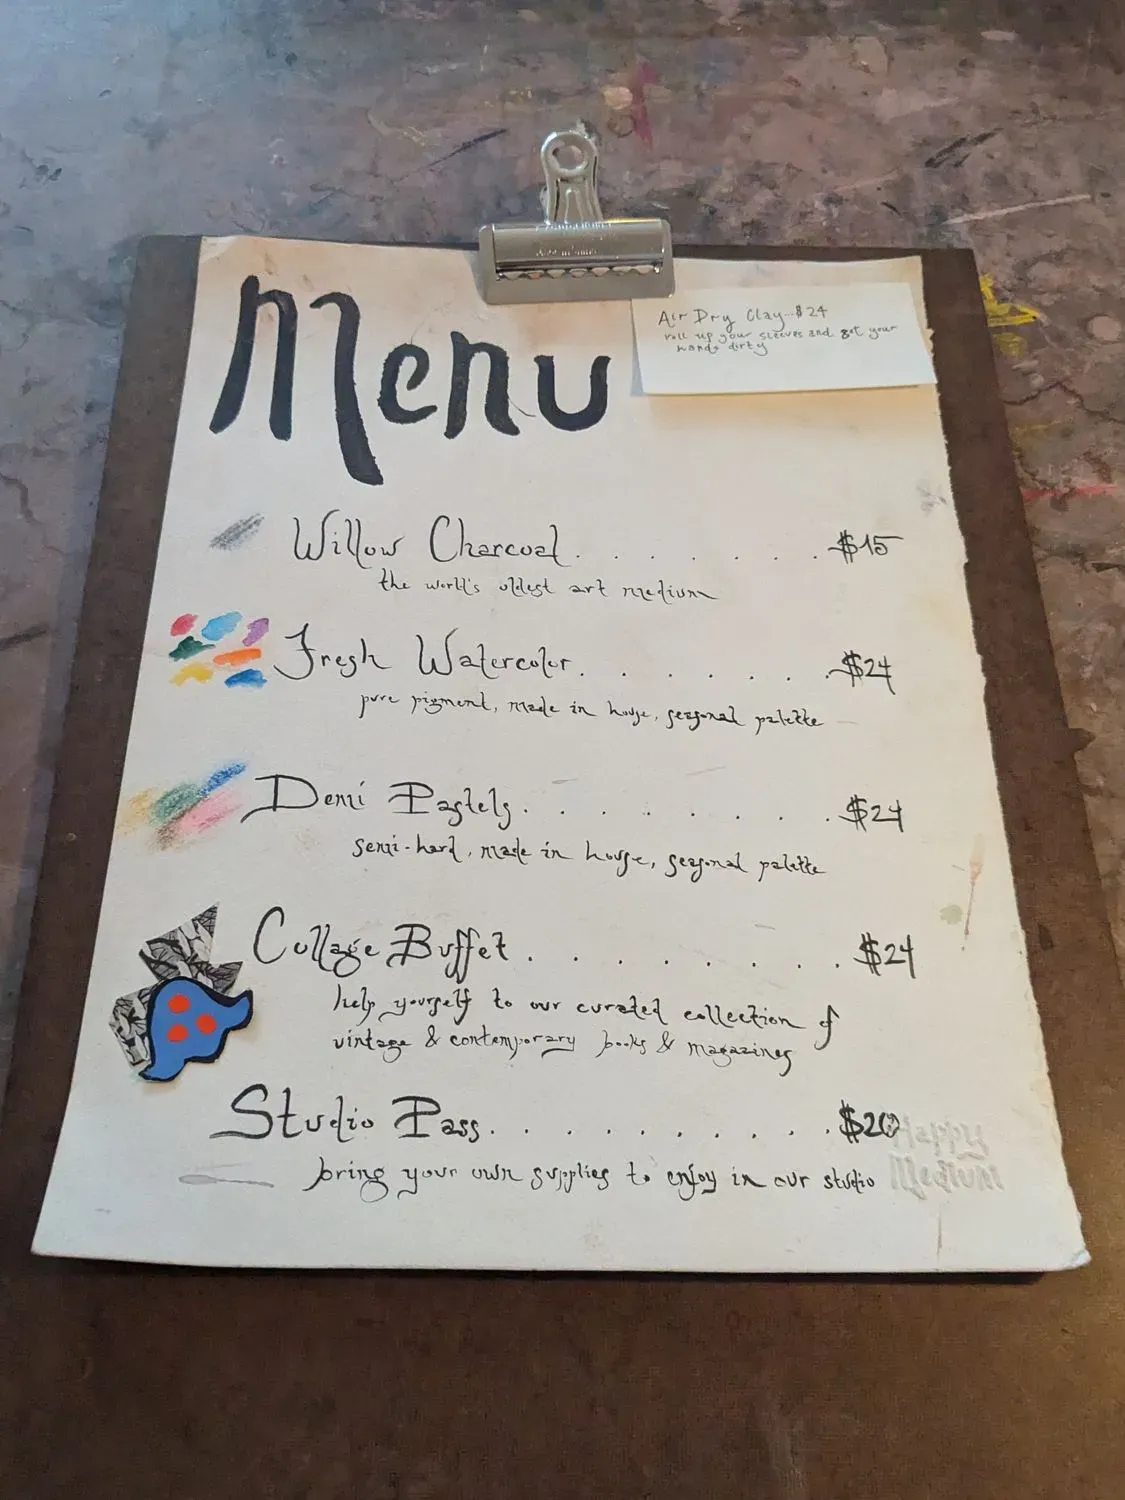 Menu
Air Dry Clay--$24
roll up your sleeves and get your
hands dirty
Willow Charcoal. . . . . . . .$15
the world's oldest art medium
Fresh Watercolor. . . . . . .$24
pure pigment, made in house, seasonal palette
Demi Pastels. . . . . . . . .$24
semi-hard, made in house, seasonal palette
Collage Buffet. . . . . . . . .$24
help yourself to our curated collection of
vintage & contemporary books & magazines
Studio Pass. . . . . . . . . .$20
bring your own supplies to enjoy in our studio
Happy
Medium